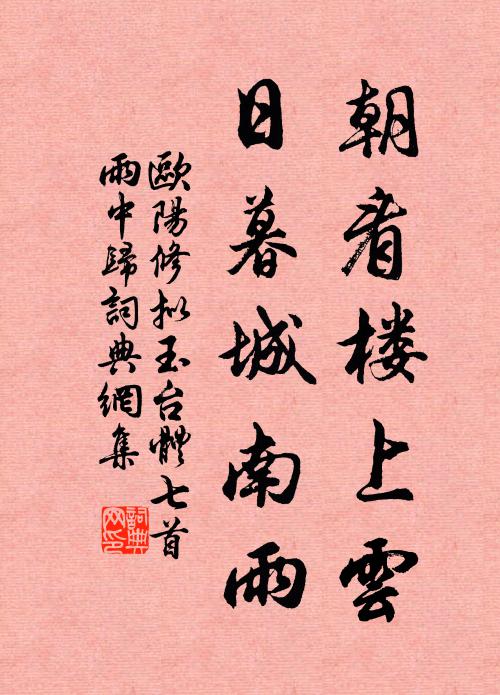 朝看楼上雲
日暮城南雨
歐陽修拟玉台體七首
雨中歸詞典網集
詞典
网印